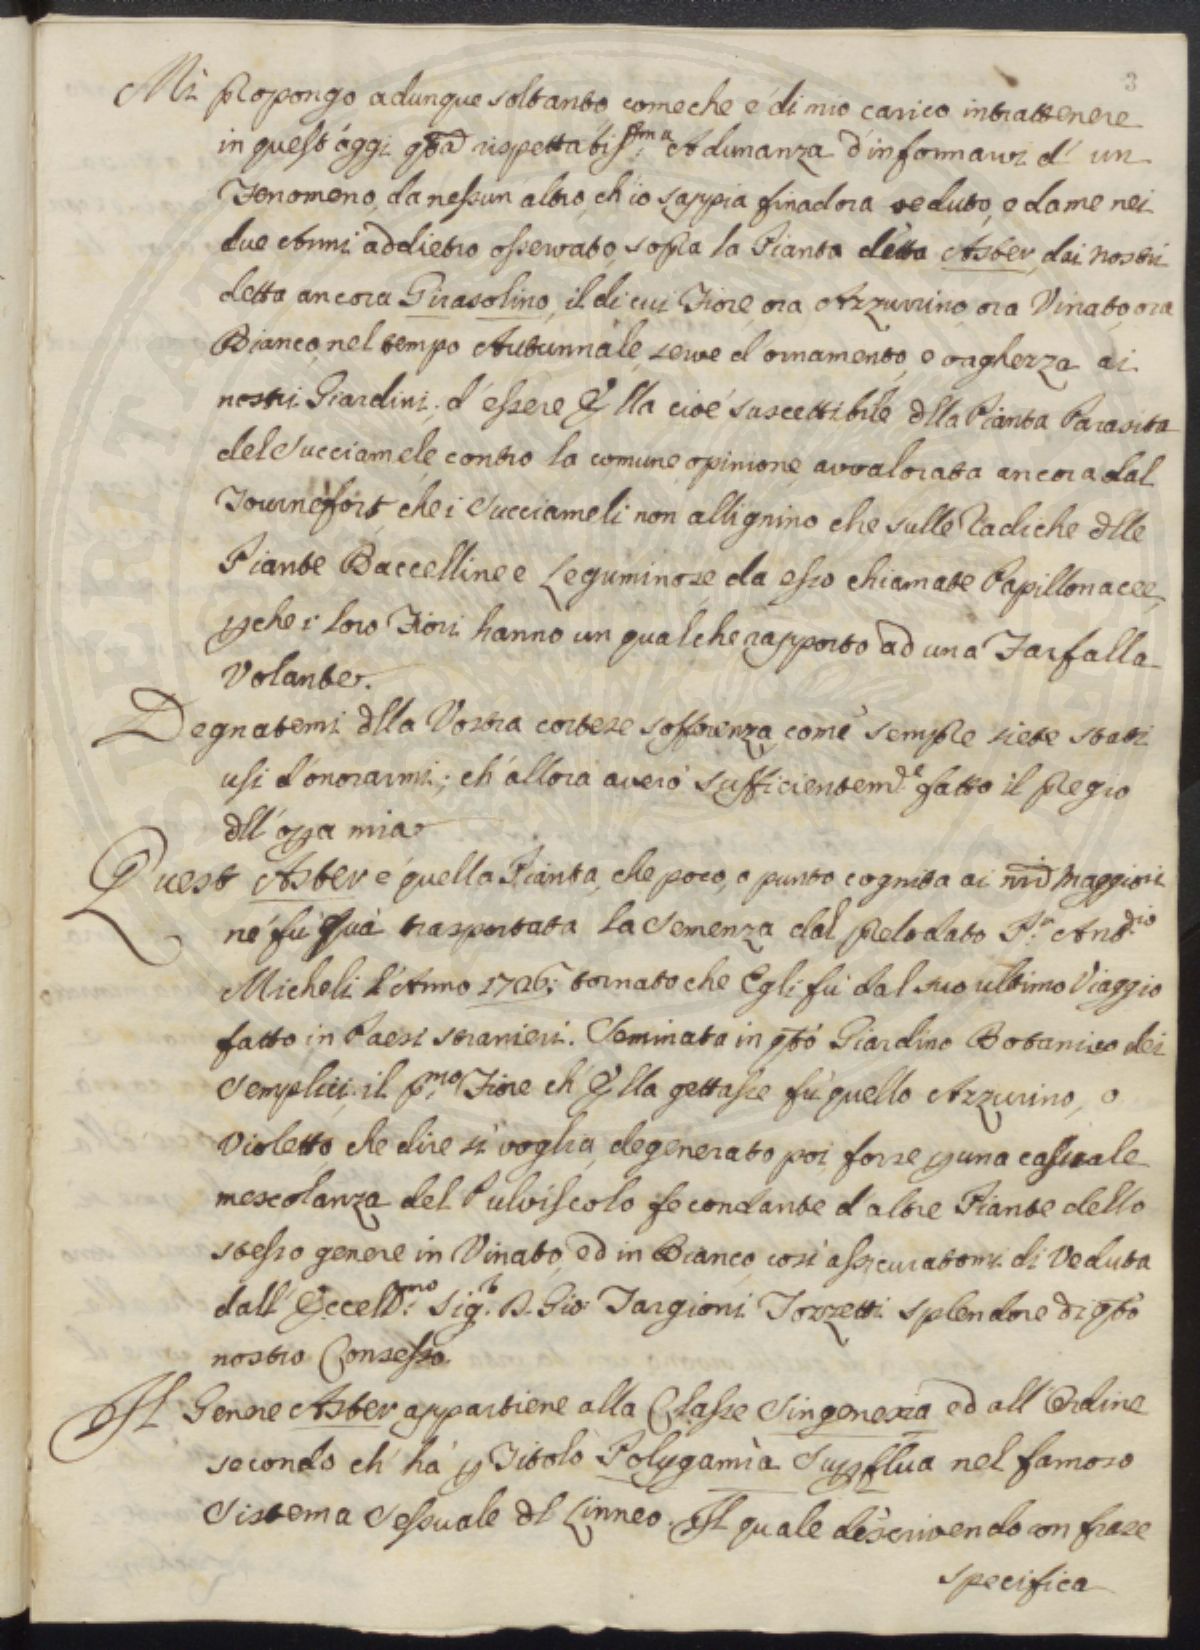 3
Mi propongo adunque soltanto, comeche è di mio carico intrattenere
in quest'oggi qta rispettabissma Adunanza d'informarvi d' un
Fenomeno, da nessun altro, ch'io sappia finadora veduto, e da me nei
due Anni addietro osservato, sopra la Pianta detta Aster, dai nostri
detta ancora Girasolino, il di cui Fiore, ora Azzurrino, ora Vinato, ora
Bianco, nel tempo Autunnale, serve d'ornamento, e vaghezza ai
nostri Giardini; d'essere Ella cioè suscettibile dlla Pianta Parasita
del Succiamele contro la comune opinione, avvalorata ancora dal
Tournefort, che i Succiameli non allignino che sulle Radiche dlle
Piante Baccelline e Leguminose, da esso chiamate Papillonacee,
pche i loro Fiori hanno un qualche rapporto ad una Farfalla
Volante.
Degnatemi dlla Vostra cortese sofferenza, come sempre siete stati
usi d'onorarmi; ch'allora averò sufficientemte fatto il Pregio
dll'opa mia.
Quest Aster è quella Pianta, che poco, o punto cognita ai nri Maggiori
ne fù quà trasportata la Semenza dal prelodato P.r Antonio
Micheli l'Anno 1726; tornato che Egli fù dal suo ultimo Viaggio
fatto in Paesi stranieri. Seminata in qto Giardino Botanico dei
Semplici, il p.mo Fiore ch'Ella gettasse fù quello Azzurino, o
Violetto, che dire si voglia, degenerato poi, forse p una casuale
mescolanza del Pulviscolo fecondante d'altre Piante dello
stesso genere in Vinato, ed in Bianco, così assicuratomi di Veduta
dall' Eccell.mo Sig.r D. Gio: Targioni Tozzetti splendore di qto
nostro Consesso.
Il Genere Aster appartiene alla Classe Singenesia ed all'Ordine
secondo ch' hà p Titolo Polygamìa Supflua nel famoso
Sistema Sessuale dl Linneo. Il quale descrivendo con frase
specifica